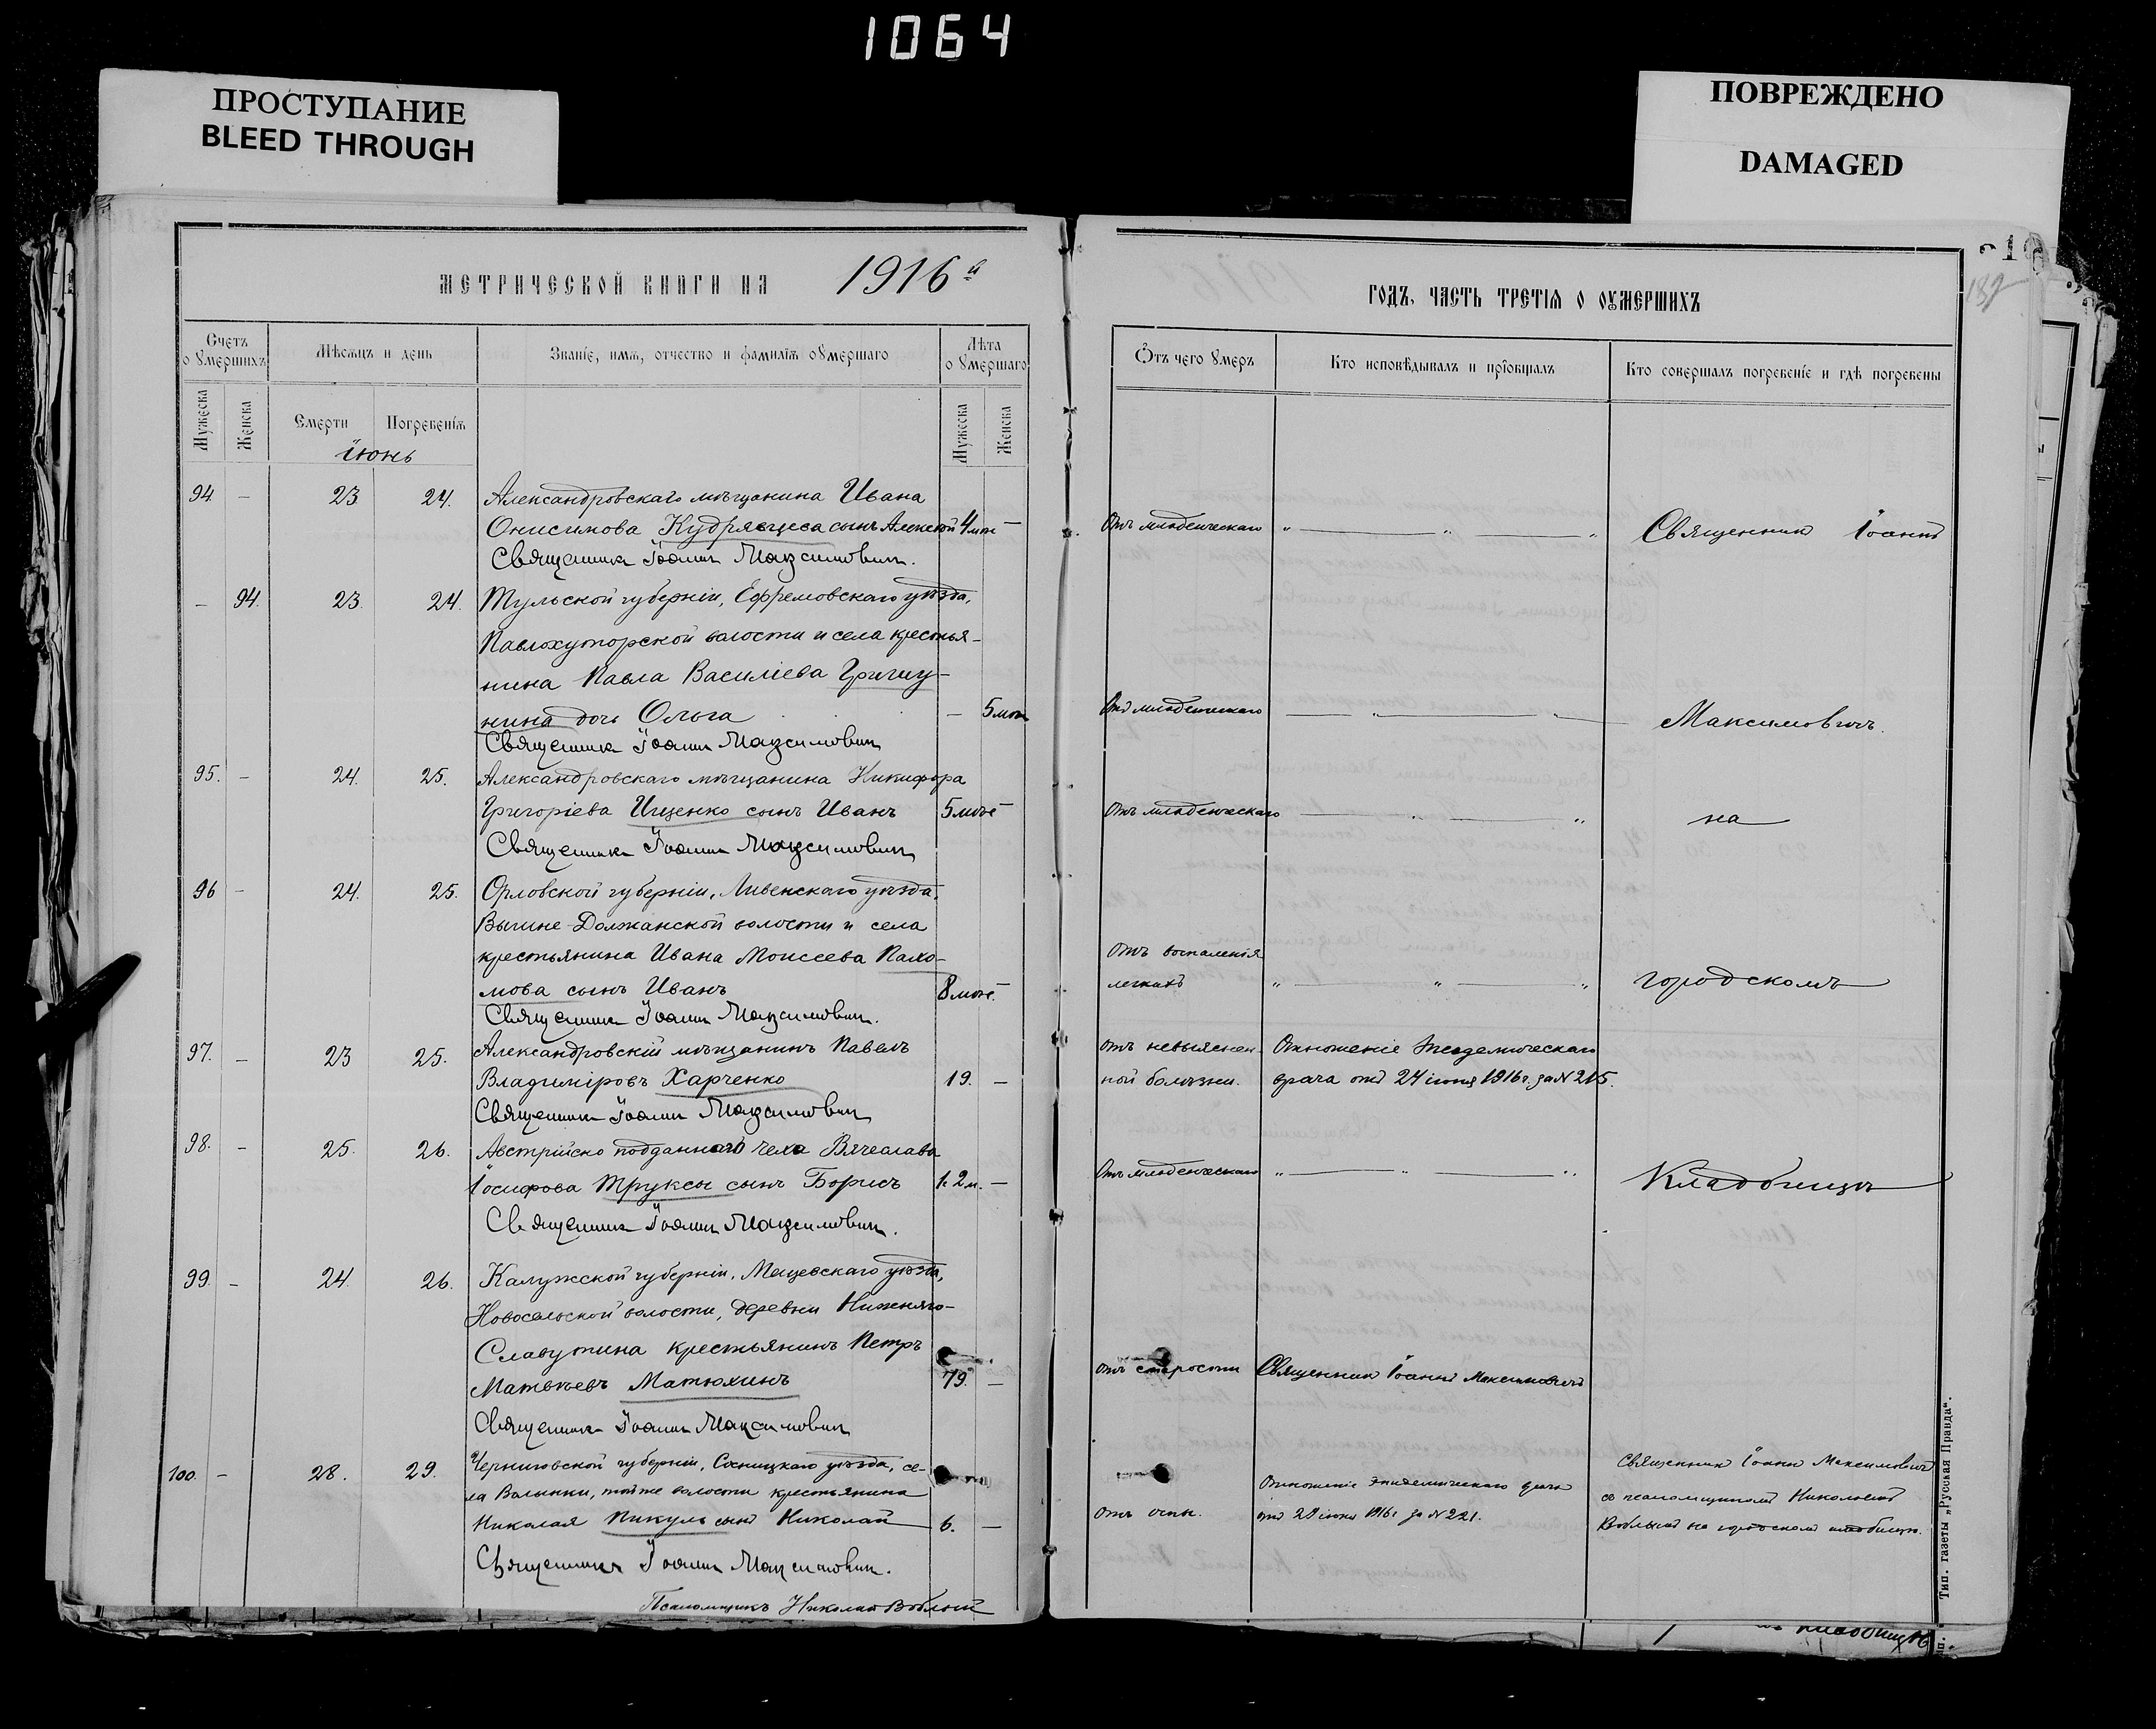 1064
ПРОСТУПАНИЕ
BLEED THROUGH
ПОВРЕЖДЕНО
DAMAGED
МЕТРИЧЕСКОЙ КНИГИ НА 1916й
Счетъ о умершихъ
Мѣсяцъ и день
Званіе, имя, отчество и фамилія умершаго
Лѣта о умершаго
Мужеска
Женска
Смерти
Погребенія
Мужеска
Женска
іюнь
94. — 23 24. Александровскаго мѣщанина Ивана
Онисимова Кудрявцева сынъ Алексѣй 4 мѣс —
Священникъ Іоаннъ Максимовичъ.
— 94. 23. 24. Тульской губерніи, Ефремовскаго уѣзда,
Павлохуторской волости и села крестья-
нина Павла Василіева
нина дочь Ольга — 5 мѣс
Священникъ Іоаннъ Максимовичъ
95. — 24. 25. Александровскаго мѣщанина Никифора
Григоріева Ищенко сынъ Иванъ 5 мѣс —
Священникъ Іоаннъ Максимовичъ
96 — 24. 25. Орловской губерніи, Ливенскаго уѣзда,
Должанской волости и села
крестьянина Ивана Моисеева Пахо-
мова сынъ Иванъ 8 мѣс. —
Священникъ Іоаннъ Максимовичъ.
97. — 23 25. Александровскій мѣщанинъ Павелъ
Владиміровъ Харченко 19. —
Священникъ Іоаннъ Максимовичъ
98. — 25. 26. Австрійско подданнаго чеха Вячеслава
Іосифова Труксы сынъ Борисъ 1г. 2 м. —
Священникъ Іоаннъ Максимовичъ.
99. — 24. 26. Калужской губерніи, Мещевскаго уѣзда,
Новосельской волости, деревни Нижняго-
Славутина крестьянинъ Петръ
Матвѣевъ Матюхинъ 79. —
Священникъ Іоаннъ Максимовичъ
100. — 28. 29. Черниговской губерніи, Сосницкаго уѣзда, се-
ла Волынки, той же волости крестьянина
Николая Пикуль сынъ Николай 6. —
Священникъ Іоаннъ Максимовичъ.
Псаломщикъ Николай Воблый
ГОДЪ, ЧАСТЬ ТРЕТІЯ О УМЕРШИХЪ
Отъ чего умеръ
Кто исповѣдывалъ и пріобщалъ
Кто совершалъ погребеніе и гдѣ погребены
Отъ младенческаго " — " — " Священникъ Іоаннъ
Отъ младенческаго — " — " — Максимовичъ.
Отъ младенческаго — " — " на
Отъ воспаленія
легкихъ " — " — " городскомъ
отъ невыяснен-
ной болѣзни.
Отношеніе Эпидемическаго
врача отъ 24 іюня 1916 г. за № 215.
Отъ младенческаго " — " — " Кладбищѣ
отъ старости Священникъ Іоаннъ Максимовичъ
отъ оспы.
Отношеніе Эпидемическаго врача
отъ 29 іюня 1916 г за № 221.
Священникъ Іоаннъ Максимовичъ
съ псаломщикомъ Николаемъ
Воблымъ на городскомъ кладбищѣ.
Тип. газеты „Русская Правда“.
кладбищѣ